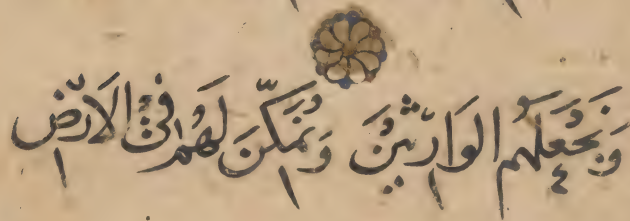 وَنَجْعَلَهُم الْوَارِثِينَ وَنُمَكِّنَ لَهُمْ فِي الْاَرْضِ